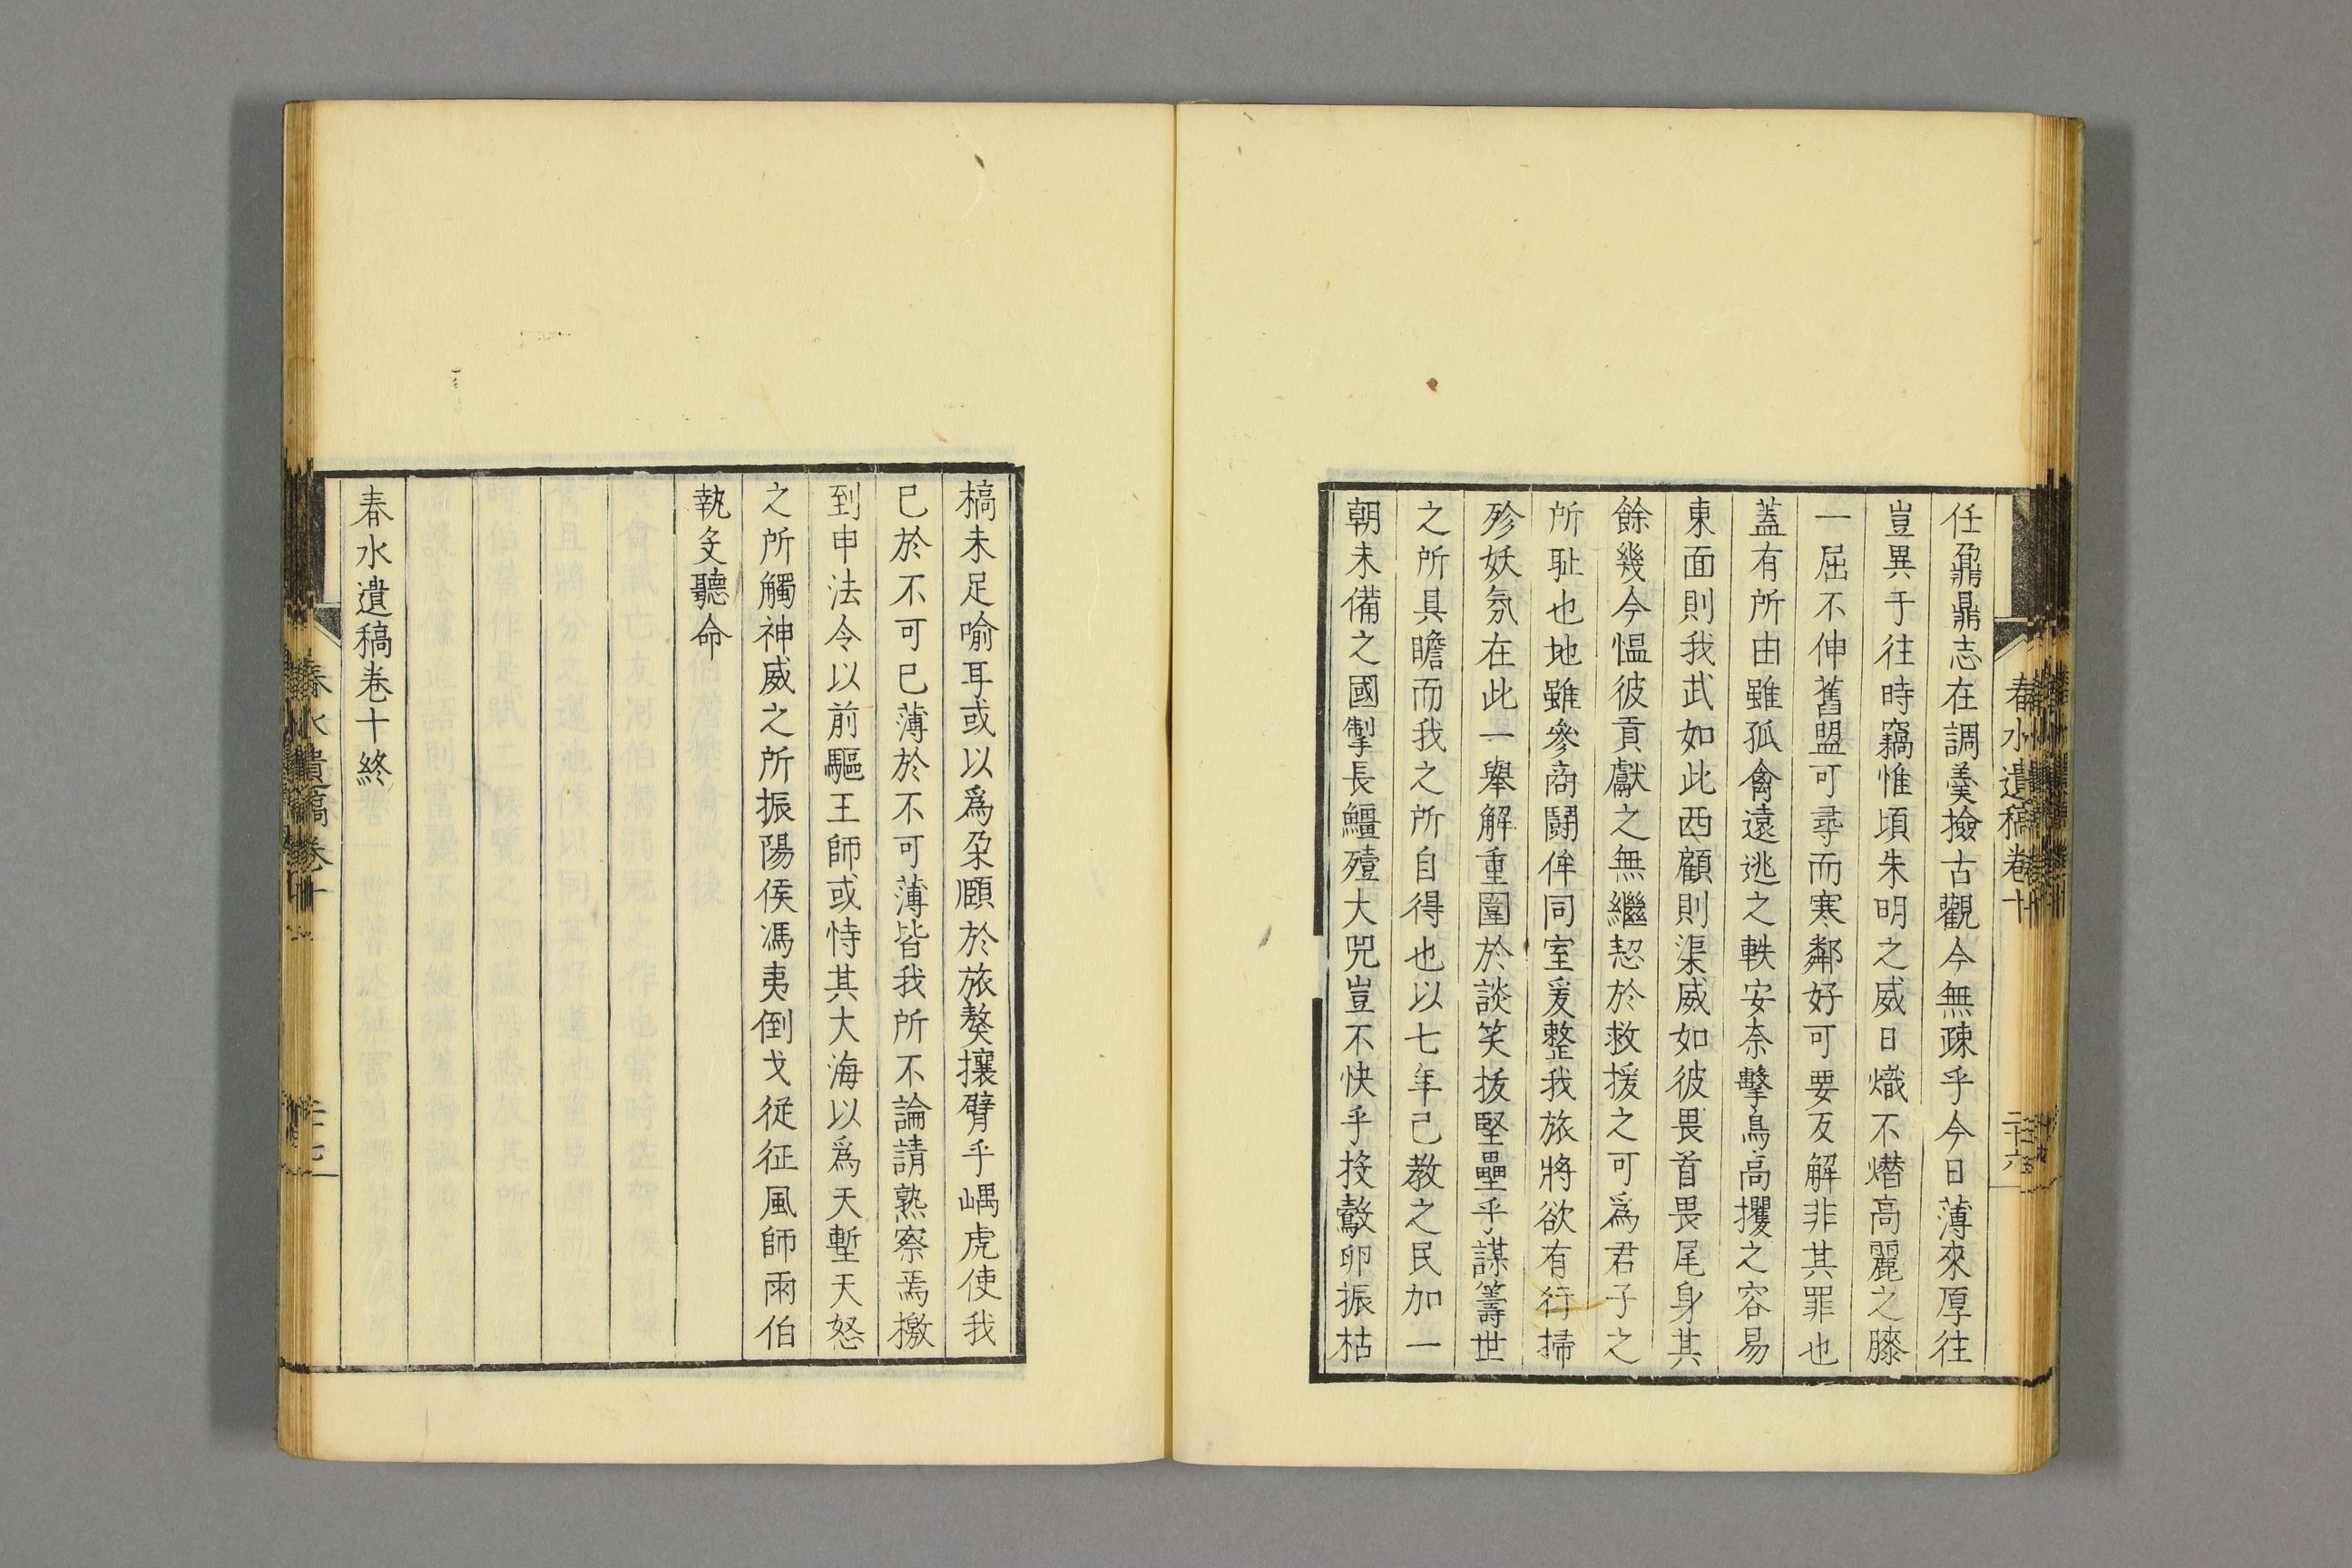 春水遺稿卷十
二十六
任鼐鼎志在調羹撿古觀今無疎乎今日薄來厚往
豈異于往時竊惟頃朱明之威日熾不熸高麗之膝
一屈不伸舊盟可尋而寒鄰好可要反解非其罪也
蓋有所由雖孤禽遠逃之軼安奈擊鳥高攫之容易
東面則我武如此西顧則渠威如彼畏首畏尾身其
餘幾今慍彼貢獻之無繼恝於救援之可爲君子之
所耻也地雖參商鬪侔同室爰整我旅將欲有行掃
殄妖氛在此一舉解重圍於談笑拔堅壘乎謀籌世
之所具瞻而我之所自得也以七年己教之民加一
朝未備之國掣長鱷殪大兕豈不快乎投鷇卵振枯
槁未足喻耳或以爲朶頤於旅獒攘臂乎嵎虎使我
已於不可已薄於不可薄皆我所不論請熟察焉檄
到申法令以前驅王師或恃其大海以爲天塹天怒
之所觸神威之所振陽侯馮夷倒戈從征風師雨伯
執殳聽命
春水遺稿卷十終
春水遺稿卷十
二十七